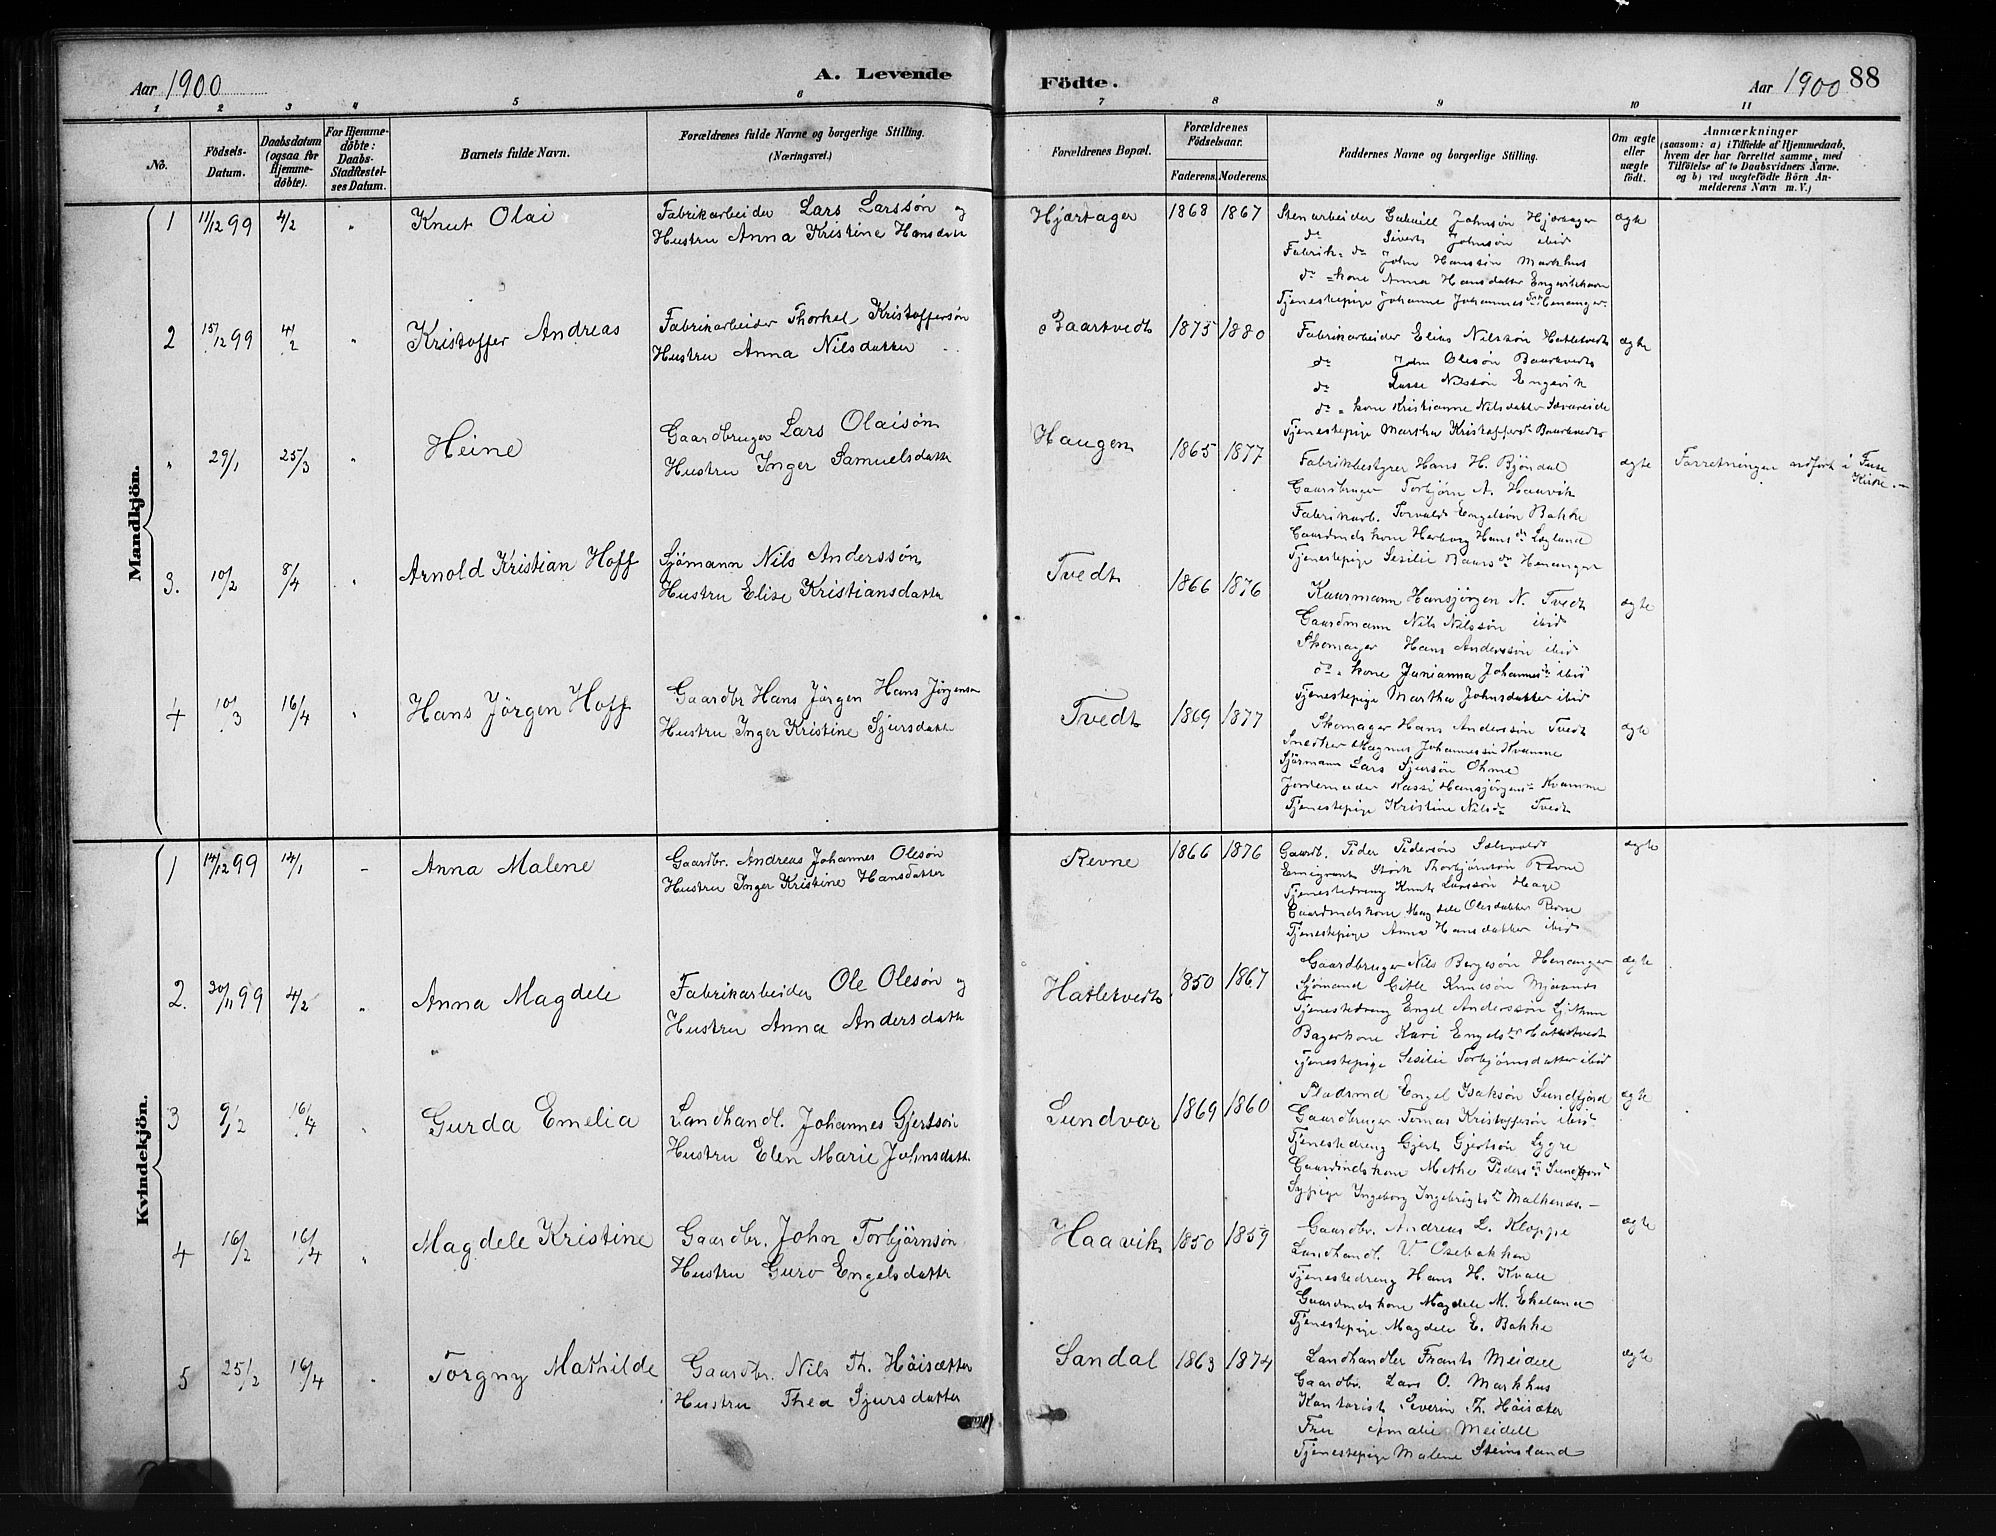 Aar 1900
A. Levende
Födte.
Aar 1900 88
1 2 3 4 5 6 7 8 9 10 11
No.
Födsels-
Datum.
Daabsdatum
(ogsaa for
Hjemme-
döbte).
For Hjemme-
döbte:
Daabs-
Stadfæstel-
ses Datum.
Barnets fulde Navn.
Forældrenes fulde Navne og borgerlige Stilling.
(Næringsvei.)
Forældrenes Bopæl.
Forældrenes
Födselsaar.
Faderens. Moderens.
Faddernes Navne og borgerlige Stilling.
Om ægte
eller
uægte
født.
Anmærkninger
(saasom: a) i Tilfælde af Hjemmedaab,
hvem der har forrettet samme, med
Tilföielse af to Daabsvidners Navne.
og b) ved uægtefödte Börn An-
melderens Navn m. V.)
Mandkjön.
1 11/12 99 4/2 " Knut Olai
Fabrikarbeider Lars Larssön og
Hustru Anna Kristine Hansdatt
Hjartager 1868 1867
Stenarbeider Gabriel Johnsön Hjartager
do Sivert Johnsön ibid
Fabrik- do John Hanssön Markhus
do - kone Anna Hansdatter
Tjenestepige Johanne Johannesdr Henanger
ægte
2 15/12 99 4/2 " Kristoffer Andreas
Fabrikarbeider Thorkel Kristoffersön
Hustru Anna Nilsdatter
Baartvedt 1875 1880
Fabrikarbeider Elias Nilssön Hatletvedt
do John Olesön Baartvedt
do Lasse Nilssön Engevik
do - kone Kristianne Nilsdatter Sævareide
Tjenestepige Martha Kristoffersdr Baartvedt
ægte
" 29/1 25/3 " Heine
Gaardbruger Lars Olaisön
Hustru Inger Samuelsdatt
Haugen 1865 1877
Fabrikbestyrer Hans H. Bjöndal
Gaardbruger Torbjörn A. Haavik
Fabrikarb. Torvald Engelsön Bakke
Gaardmds kone Herborg Hansdr Lægland
Tjenestepige Sesilie Baarsdr Henanger
ægte
Forretningen udfört i Fuse
Kirke.
3. 10/2 8/4 " Arnold Kristian Hoff
Sjömann Nils Anderssön
Hustru Elise Kristiansdatter
Tvedt 1866 1876
Hansjörgen N. Tvedt
Gaardmann Nils Nilssön ibid
Skomager Hans Anderssön ibid
do - kone Janianna Johannesdr ibid
Tjenestepige Martha Johnsdatter ibid
ægte
4 10/3 16/4 " Hans Jörgen Hoff
Gaardbr Hans Jörgen Hans Jörgensn
Hustru Inger Kristine Sjursdatt
Tvedt 1869 1877
Skomager Hans Anderssön Tvedt
Snedker Magnus Johannessön Kvamme
Sjömann Lars Sjursön Ohme
Jordemoder Kassi Hansjörgensdr Kvamme
Tjenestepige Kristine Nilsdr Tvedt
ægte
Kvindekjön.
1 14/12 99 14/1 - Anna Malene
Gaardbr. Andreas Johannes Olesön
Hustru Inger Kristine Hansdatter
Revne 1866 1876
Gaardb. Peder Pedersön
Emigrant Störk Thorbjörnsön Revne
Tjenestedreng Knut Larssön Hage
Gaardmdskone Magdele Olesdatter Revne
Tjenestepige Anna Hansdatter ibid
ægte
2. 30/11 99 4/2 " Anna Magdele
Fabrikarbeider Ole Olesön og
Hustru Anna Andersdatt
Hatletvedt 1850 1867
Gaardbruger Nils Bergesön Henanger
Sjömand Gitle Knutsön Mjaanes
Tjenestedreng Engel Anderssön
Bagerkone Kari Engelsdr Hatletvedt
Tjenestepige Sesilie Torbjörnsdatter ibid
ægte
3 9/12 16/4 " Gurda Emelia
Landhandl. Johannes Gjertsön
Hustru Elen Marie Johnsdatt
Sundvor 1869 1860
Pladsmd Engel Isaksön Sundfjord
Gaardbruger Tomas Kristoffersön ibid
Tjenestedreng Gjert Gjertsön Lygre
Gaardmdskone Metha Pedersdr Sundfjord
Sypige Ingeborg Ingebrigtsdr Malkenes.
ægte
4 16/2 16/4 " Magdele Kristine
Gaardbr. John Torbjörnsön
Hustru Guro Engelsdatt
Haavik 1850 1859
Gaardbr. Andreas L. Kloppe
Landhandl. V. Osebakken
Tjenestedreng Hans H. Kvale
Gaardmdskone Magdele M. Ekeland
Tjenestepige Magdele E. Bakke
ægte
5 25/2 16/4 " Torgny Mathilde
Gaardbr. Nils Th. Höisætter
Hustru Thea Sjursdatter
Sandal 1863 1874
Landhandler Frants Meidell
Gaardbr. Lars O. Markhus
Kontorist Severin Th. Höisæter
Fru Amalie Meidell
Tjenestepige Malene Steinsland
ægte